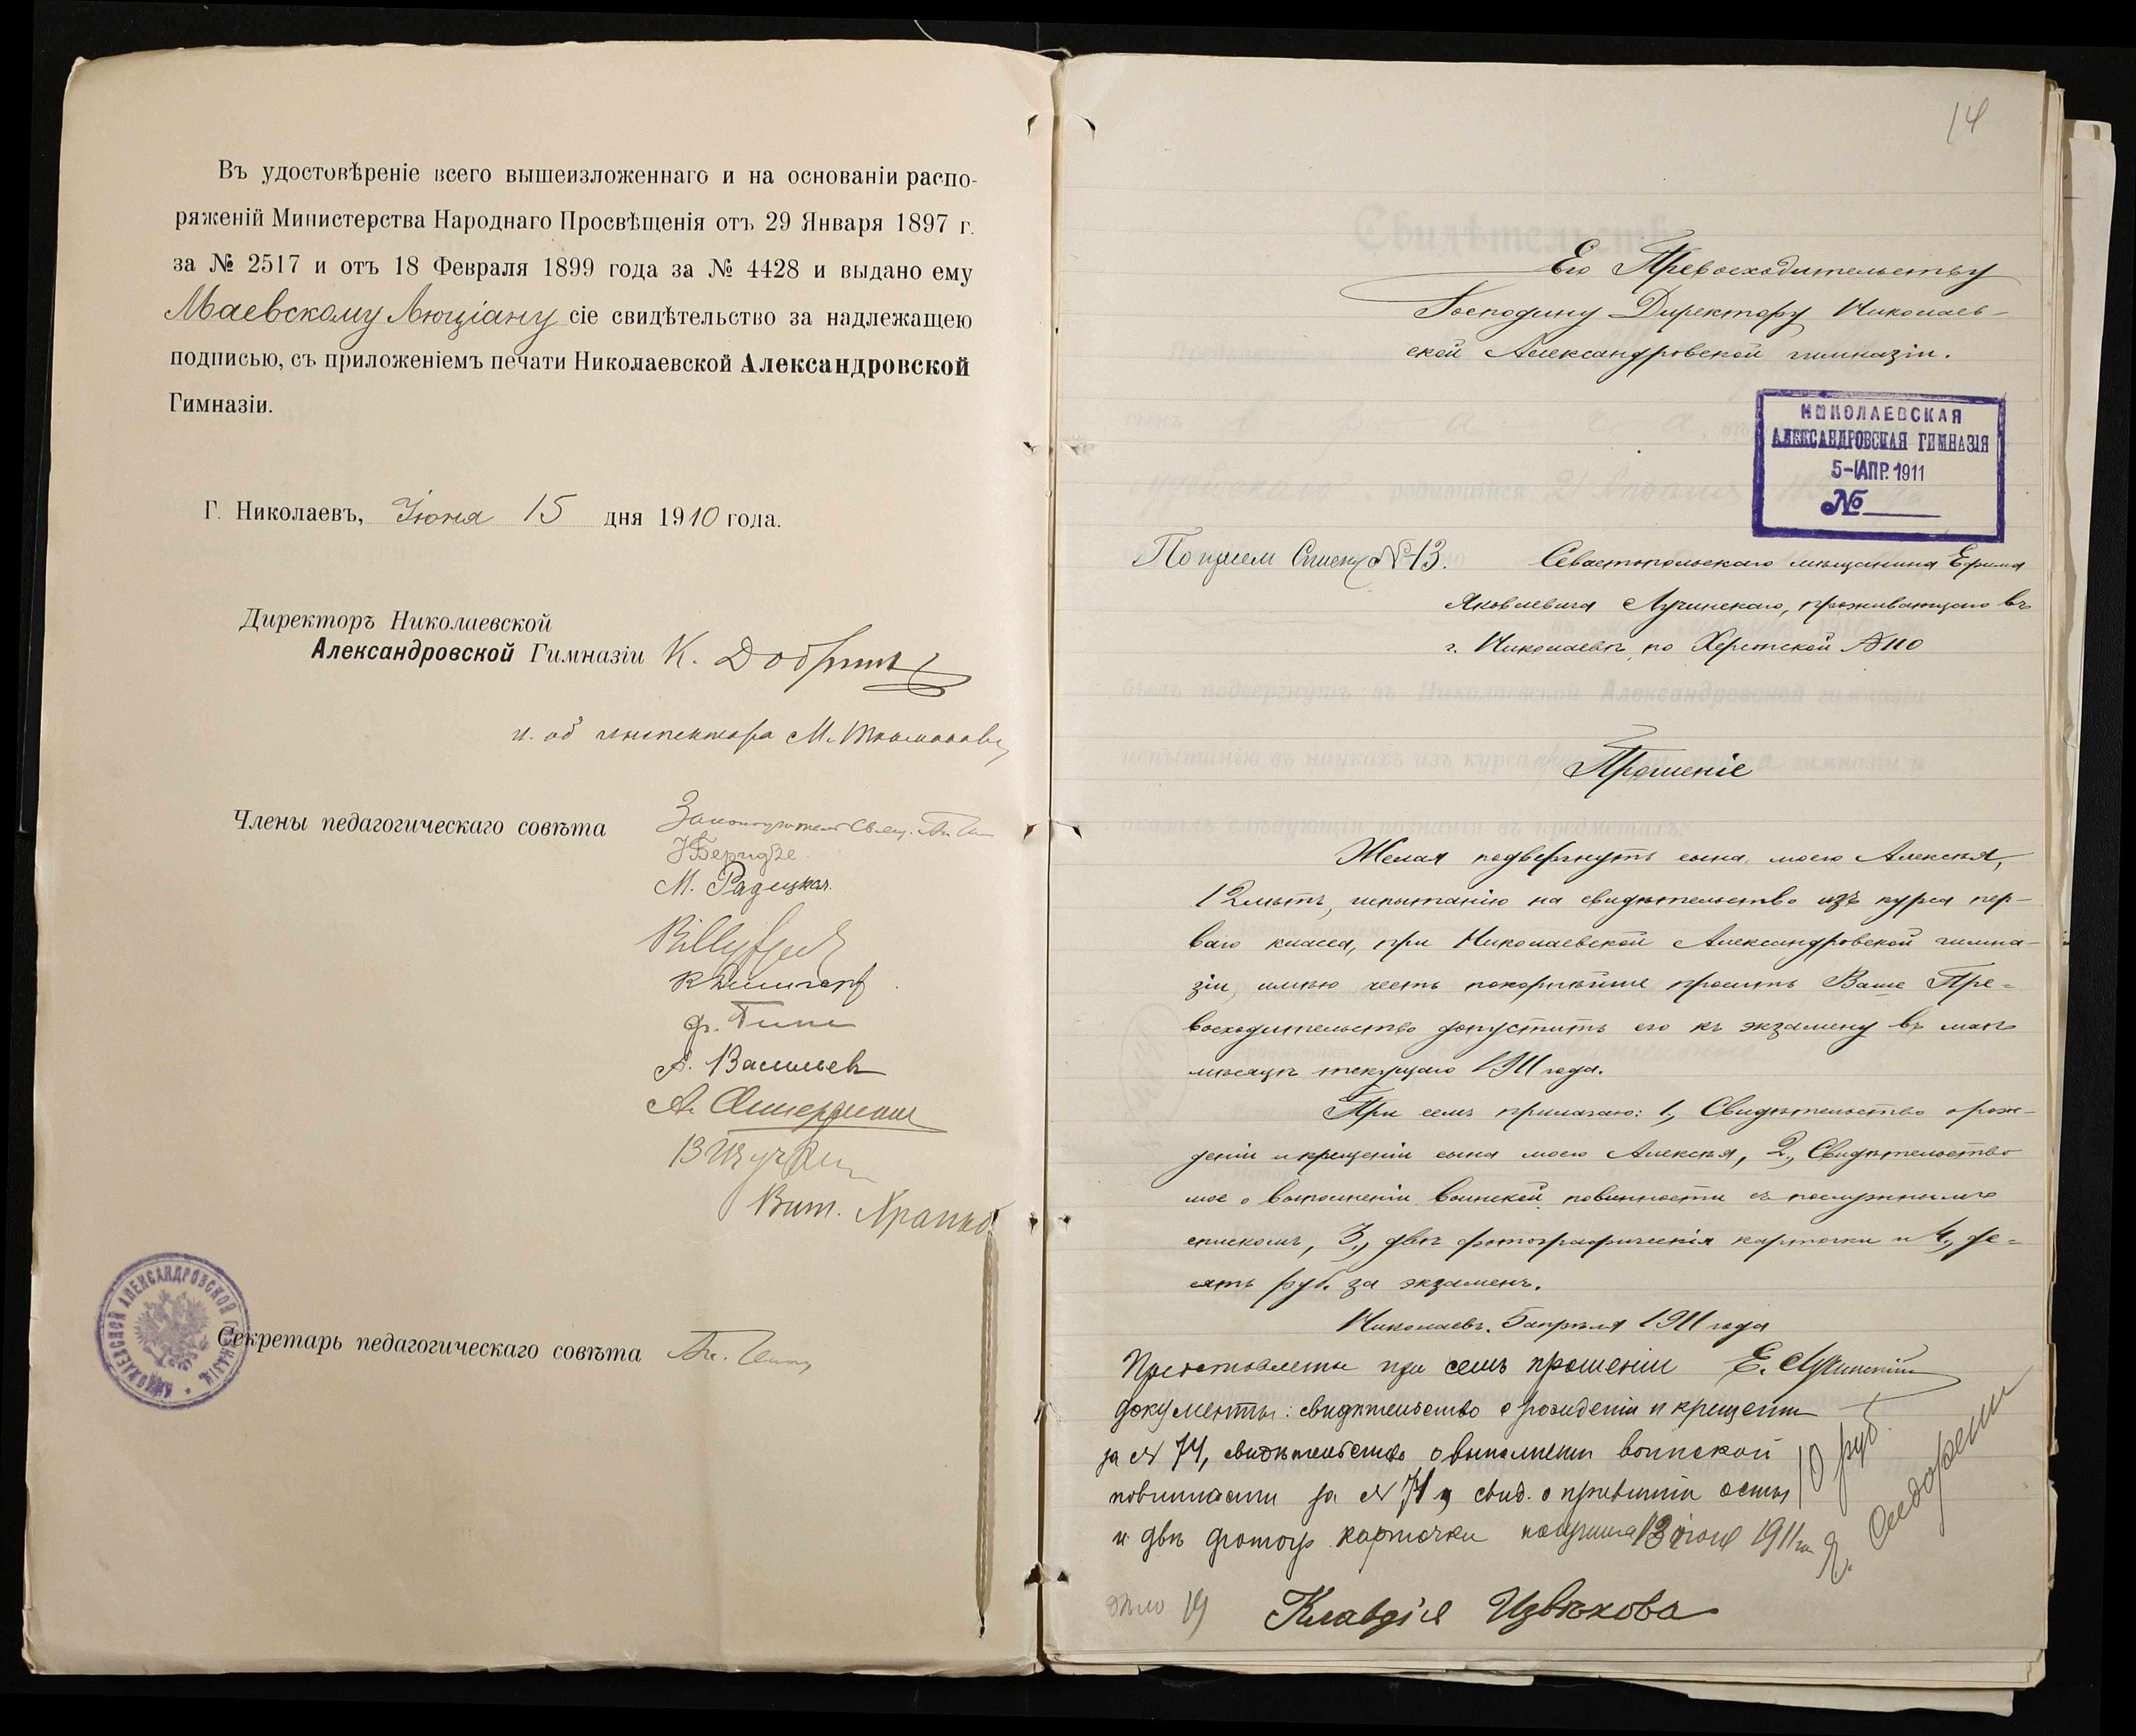 Въ удостовѣреніе всего вышеизложеннаго и на основаніи распо-
ряженій Министерства Народнаго Просвѣщенія отъ 29 Января 1897 г.
за № 2517 и отъ 18 Февраля 1899 года за № 4428 и выдано ему
Маевскому Люціану сіе свидѣтельство за надлежащею
подписью, съ приложеніемъ печати Николаевской Александровской
Гимназіи.
Г. Николаевъ, Іюня 15 дня 1910 года.
Директоръ Николаевской
Александровской Гимназіи К.
и. об инспектора М.
Члены педагогическаго совѣта
Законоучитель Свящ.
М. Радецкая.
А. Васильевъ
Вит.
НИКОЛАЕВСКОЙ АЛЕКСАНДРОВСКОЙ ГИМНАЗІИ
Секретарь педагогическаго совѣта
14
Его Превосходительству
Господину Директору Николаев-
ской Александровской гимназіи.
НИКОЛАЕВСКАЯ
АЛЕКСАНДРОВСКАЯ ГИМНАЗІЯ
5-АПР. 1911
№
По № 13.
Севастопольскаго мѣщанина Ефима
Яковлевича Лучинскаго, проживающаго въ
г. Николаевѣ, по Херсонской № 110
Прошеніе
Желая подвергнуть сына моего Алексѣя,
12 лѣтъ, испытанію на свидѣтельство изъ курса пер-
ваго класса, при Николаевской Александровской гимна-
зіи, имѣю честь покорнѣйше просить Ваше Пре-
восходительство допустить его къ экзамену въ маѣ
мѣсяцѣ текущаго 1911 года.
При семъ прилагаю: 1., Свидѣтельство о рож-
деніи и крещеніи сына моего Алексѣя, 2., Свидѣтельство
мое о выполненіи воинской повинности съ послужнымъ
спискомъ, 3., двѣ фотографическія карточки и 4., де-
сять руб. за экзаменъ.
Николаевъ. 5 апрѣля 1911 года
Е. Лучинскій
при семъ прошеніи
документы: свидѣтельство о рожденіи и крещеніи
за № 74, свидѣтельство о выполненіи воинской
повинности за № 71, свид. о привитіи оспы
и двѣ фотогр. карточки получила 13 іюня 1911 г.
10 руб.
дѣло 19
Клавдія Извѣкова